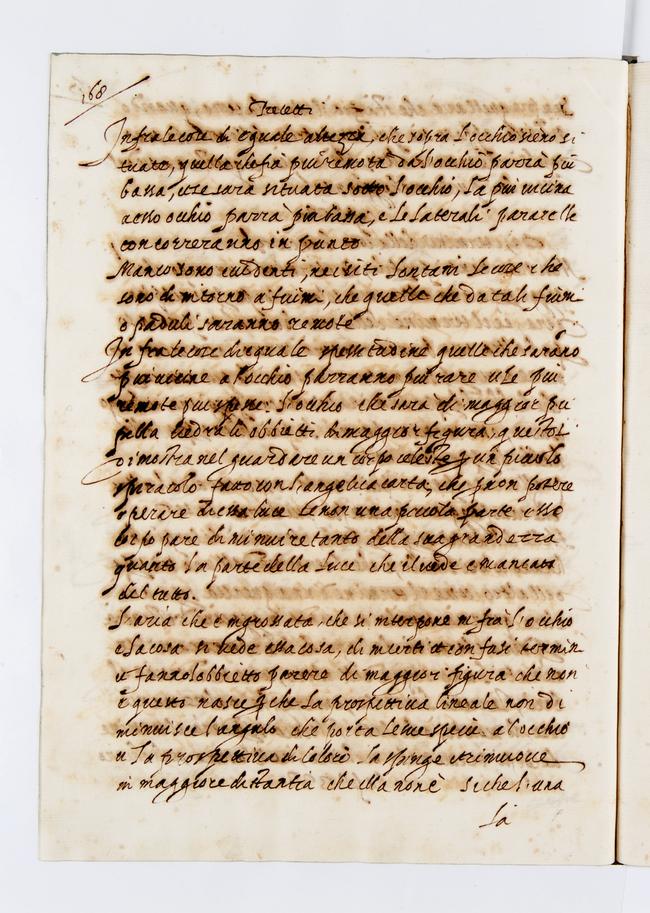 168
Precetti
Infra le cose di equale altezza, che sopra l'occhio sieno si
tuate, quella che fia piu remota da l'occhio parra piu
bassa, et se sara situata sotto l'occhio, la piu vicina
a esso occhio parra piu bassa, e le laterali pararelle
concorreranno in punto
Manco sono evidenti, ne i siti lontani le cose che
sono d'intorno a fiumi, che quelle che da tali fiumi
o paduli saranno remote
In fra le cose di equale spessitudine quelle che sarano
piu vicine a l'occhio parranno piu rare et le piu
remote piu spesse. L'ochio che sara di maggior pu
pilla vedra li obbietti di maggior figura, questo si
dimostra nel guardare un corpo celeste per un picciolo
spiracolo fatto con l'angelicha carta, che per non potere
operare di essa luce se non una piccola parte esso
corpo pare diminuire tanto della sua grandezza
quanto la parte della luce che il vede e mancato
del tutto.
L'aria che è ingrossata, che si interpone in fra l'occhio
e la cosa si vede essa cosa, di incerti et confusi termini
et fanno l'obbietto parere di maggior figura che non
è questo nasce per che la prospettiva lineale non di
minuisce l'angolo che porta le sue specie a l'occhio
et la prospettiva di colori la spinge et rimuove
in maggiore distantia che ella non è si che l'una
la